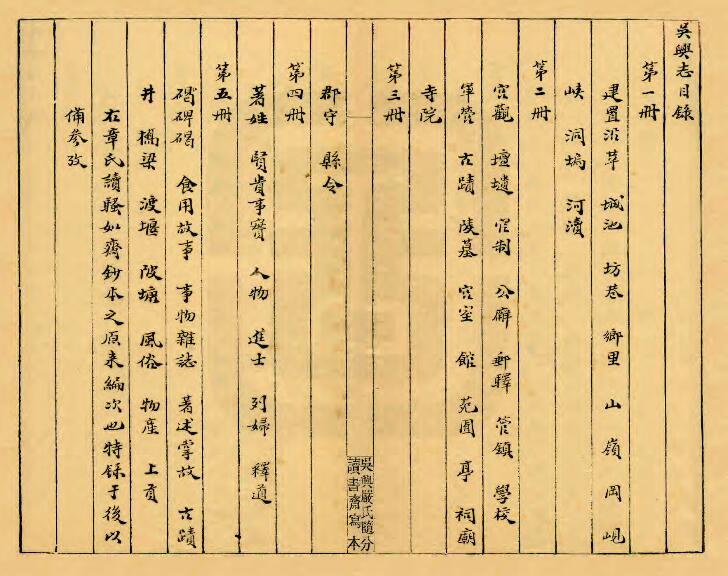 吳興志目錄
第一冊
建置沿革 城池 坊巷 鄉里 山 嶺 岡 峴
峽 洞 塢 河瀆
第二冊
宮觀 壇壝 官制 公廨 郵驛 管鎮 學校
軍營 古蹟 陵墓 宮室 館 苑囿 亭 祠廟
寺院
第三冊
吳興嚴氏隨分
讀書齋寫本
郡守 縣令
第四冊
著姓 賢貴事實 人物 進士 列婦 釋道
第五冊
碣碑碣 食用故事 事物雜誌 著述掌故 古蹟
井 橋梁 渡堰 陂塘 風俗 物產 上貢
右章氏讀騷如齋鈔本之原來編次也特錄于後以
備參攷